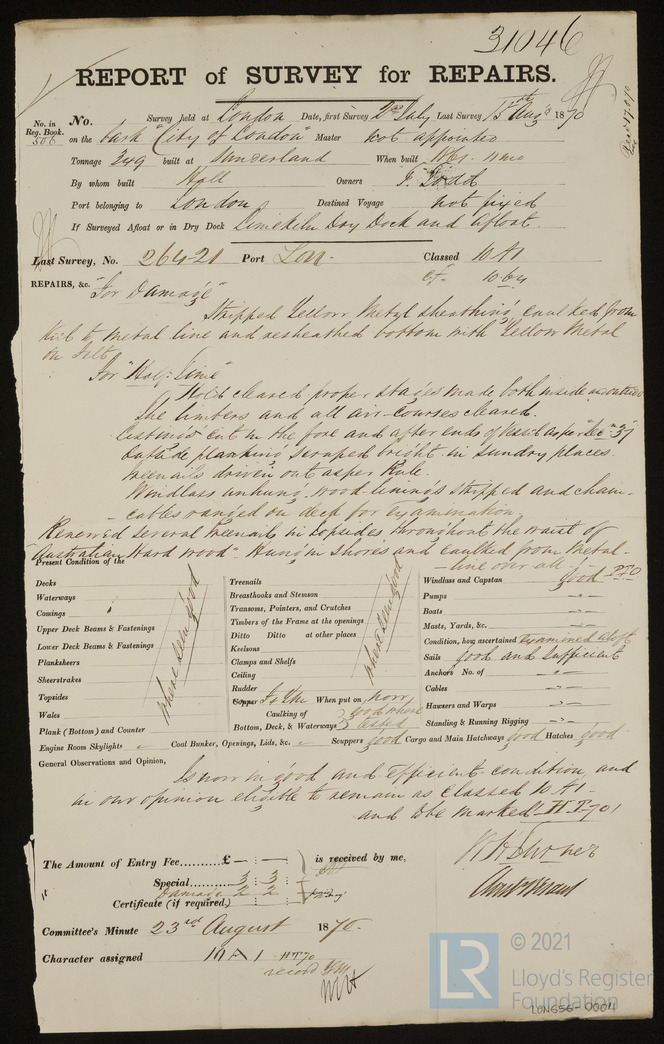 31046
REPORT of SURVEY for REPAIRS.
No. in Reg. Book. 506
No. Survey held at London Date, first Survey 2nd July Last Survey 15th Augt 1870
on the bark "City of London" Master not appointed
Tonnage 249 built at Sunderland When built
By whom built Hall Owners J. Todd
Port belonging to London Destined Voyage not fixed
If Surveyed Afloat or in Dry Dock Limekiln Dry Dock and afloat.
Last Survey, No. 26421 Port Lon. Classed 10 A1
REPAIRS, &c. "For Damage"
Stripped Yellow Metal sheathing, caulked from
Keel to metal line and resheathed bottom with Yellow Metal
on felt.
For "Half Time"
Hold cleared proper stages made both inside and outside
The limbers and all air-courses cleared.
Listings cut in the fore and after ends of Vessel as per Sec 37
Outside planking scraped bright in sundry places.
Treenails driven out as per Rule.
Windlass unhung, wood linings stripped and chain-
-cables ranged on deck for examination.
Renewed several treenails in topsides throughout the want of
Australian Hard wood. Hung in shores and caulked from Metal-
-line over all P.T.O
Present Condition of the
Decks
Waterways
Comings
Upper Deck Beams & Fastenings
Lower Deck Beams & Fastenings
Planksheers
Sheerstrakes
Topsides
Wales
Plank (Bottom) and Counter
where seen good
Treenails
Breasthooks and Stemson
Transoms, Pointers, and Crutches
Timbers of the Frame at the openings
Ditto Ditto at other places
Keelsons
Clamps and Shelfs
Ceiling
Rudder
where seen good
Copper When put on now
Caulking of
Bottom, Deck, & Waterways good where tested
Windlass and Capstan good
Pumps
Boats
Masts, Yards, &c.
Condition, how ascertained Examined aloft
Sails good and sufficient
Anchors No. of
Cables
Hawsers and Warps
Standing & Running Rigging
Engine Room Skylights Coal Bunker, Openings, Lids, &c. Scuppers good Cargo and Main Hatchways good Hatches good
General Observations and Opinion,
Is now in good and efficient condition, and
in our opinion eligible to remain as classed 10 A1
and to be marked H.T. 70
The Amount of Entry Fee......... £ — : — : is received by me,
Special......... 3 : 3 :
Damage 2 2
Certificate (if required.)
Committee's Minute 23rd August 1870.
Character assigned 10 A 1 H.T. 70
record YM
LR
© 2021
Lloyd's Register
Foundation
LON656-0004